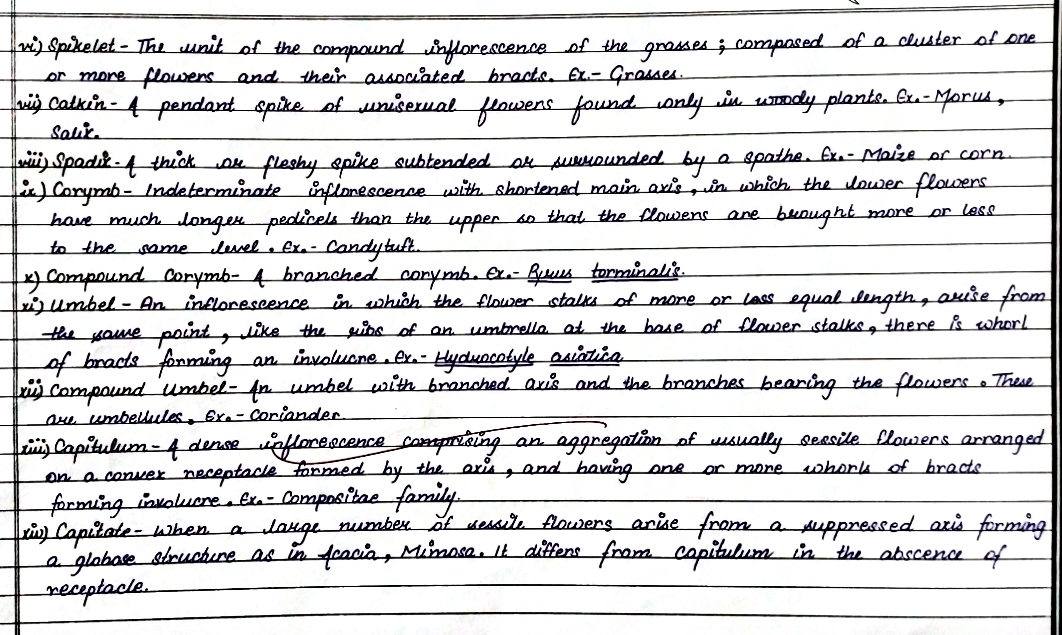 vi) Spikelet - The unit of the compound inflorescence of the grasses ; composed of a cluster of one
or more flowers and their associated bracts. Ex.- Grasses.
vii) Catkin - A pendant spike of unisexual flowers found only in woody plants. Ex.- Morus,
Salix.
viii) Spadix - A thick or fleshy spike subtended or surrounded by a spathe. Ex.- Maize or corn.
ix) Corymb - Indeterminate inflorescence with shortened main axis, in which the lower flowers
have much longer pedicels than the upper so that the flowers are brought more or less
to the same level. Ex.- Candytuft.
x) Compound Corymb- A branched corymb. Ex.- Pyrus torminalis.
xi) Umbel - An inflorescence in which the flower stalks of more or less equal length, arise from
the same point, like the ribs of an umbrella at the base of flower stalks, there is whorl
of bracts forming an involucre. Ex.- Hydrocotyle asiatica
xii) Compound Umbel- An umbel with branched axis and the branches bearing the flowers. These
are umbellules. Ex.- Coriander.
xiii) Capitulum - A dense inflorescence comprising an aggregation of usually sessile flowers arranged
on a convex receptacle formed by the axis, and having one or more whorls of bracts
forming involucre. Ex.- Compositae family.
xiv) Capitate- When a large number of sessile flowers arise from a suppressed axis forming
a globose structure as in Acacia, Mimosa. It differs from capitulum in the abscence of
receptacle.